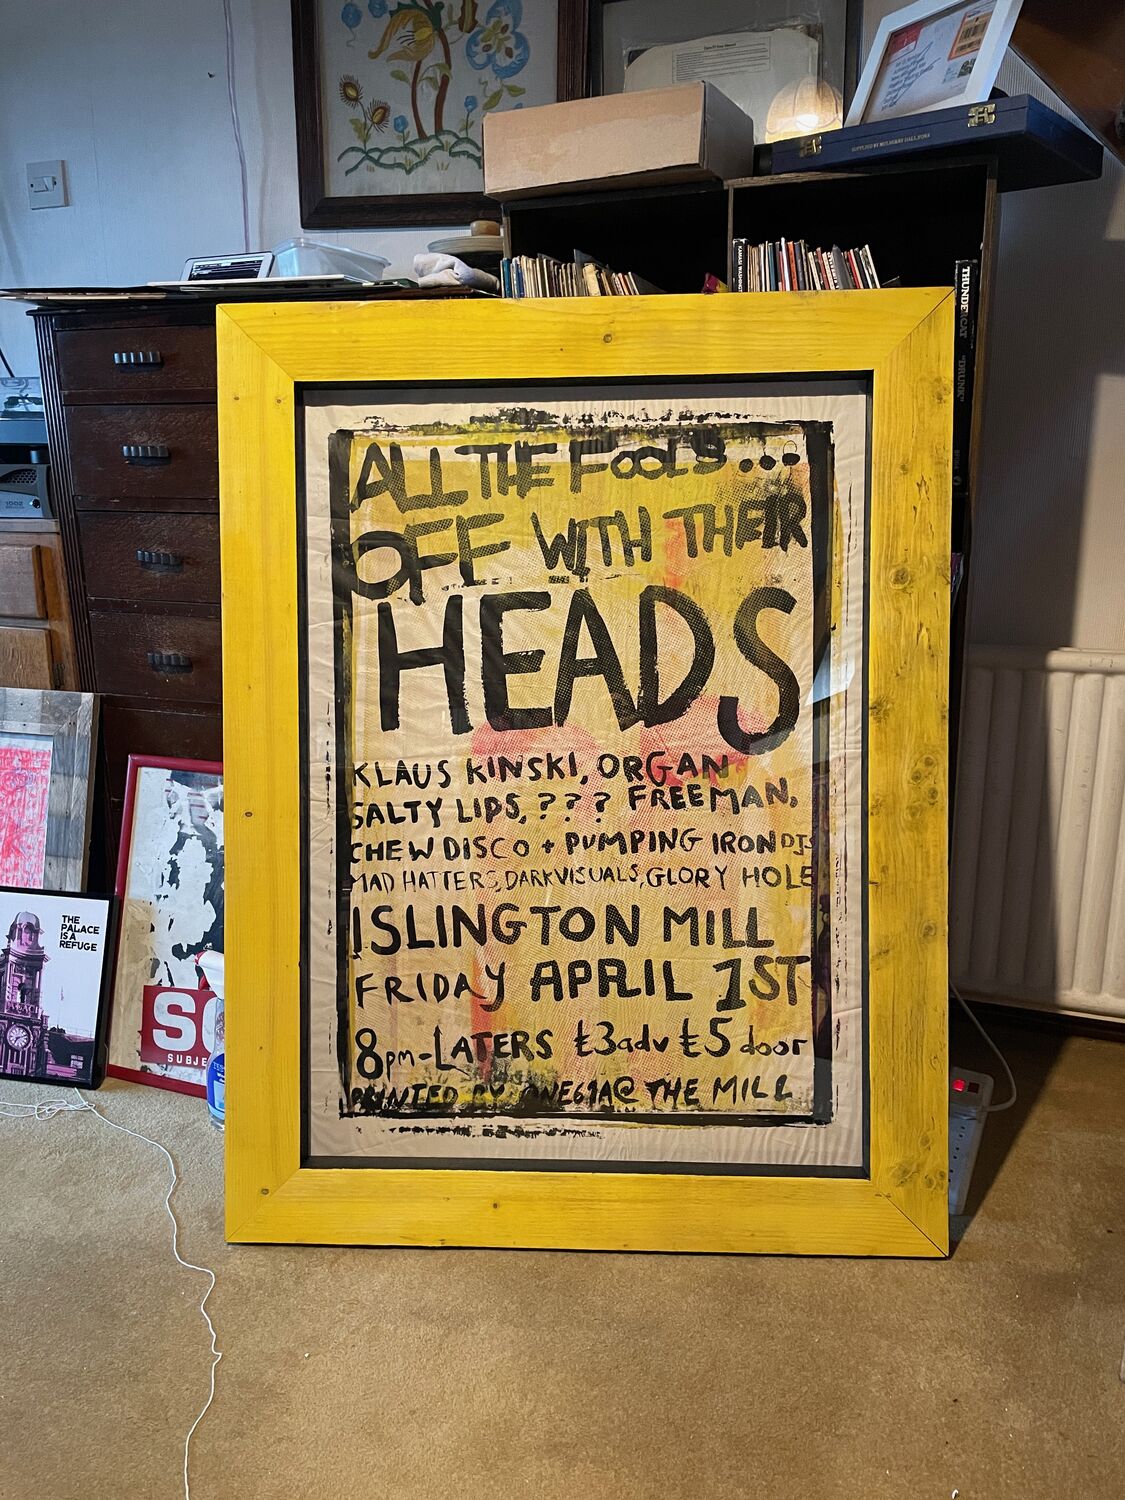 ALL THE FOOLS...
OFF WITH THEIR
HEADS
KLAUS KINSKI, ORGAN
SALTY LIPS, ? ? ? FREEMAN,
CHEW DISCO + PUMPING IRON DJS
MAD HATTERS, DARKVISUALS, GLORY HOLE
ISLINGTON MILL
FRIDAY APRIL 1ST
8pm-LATERS £3adv £5 door
PRINTED BY ONE69A@ THE MILL
THE
PALACE
IS A
REFUGE
SUBJE
THUNDERCAT "DRUNK"
KAMASI WASHINGTON